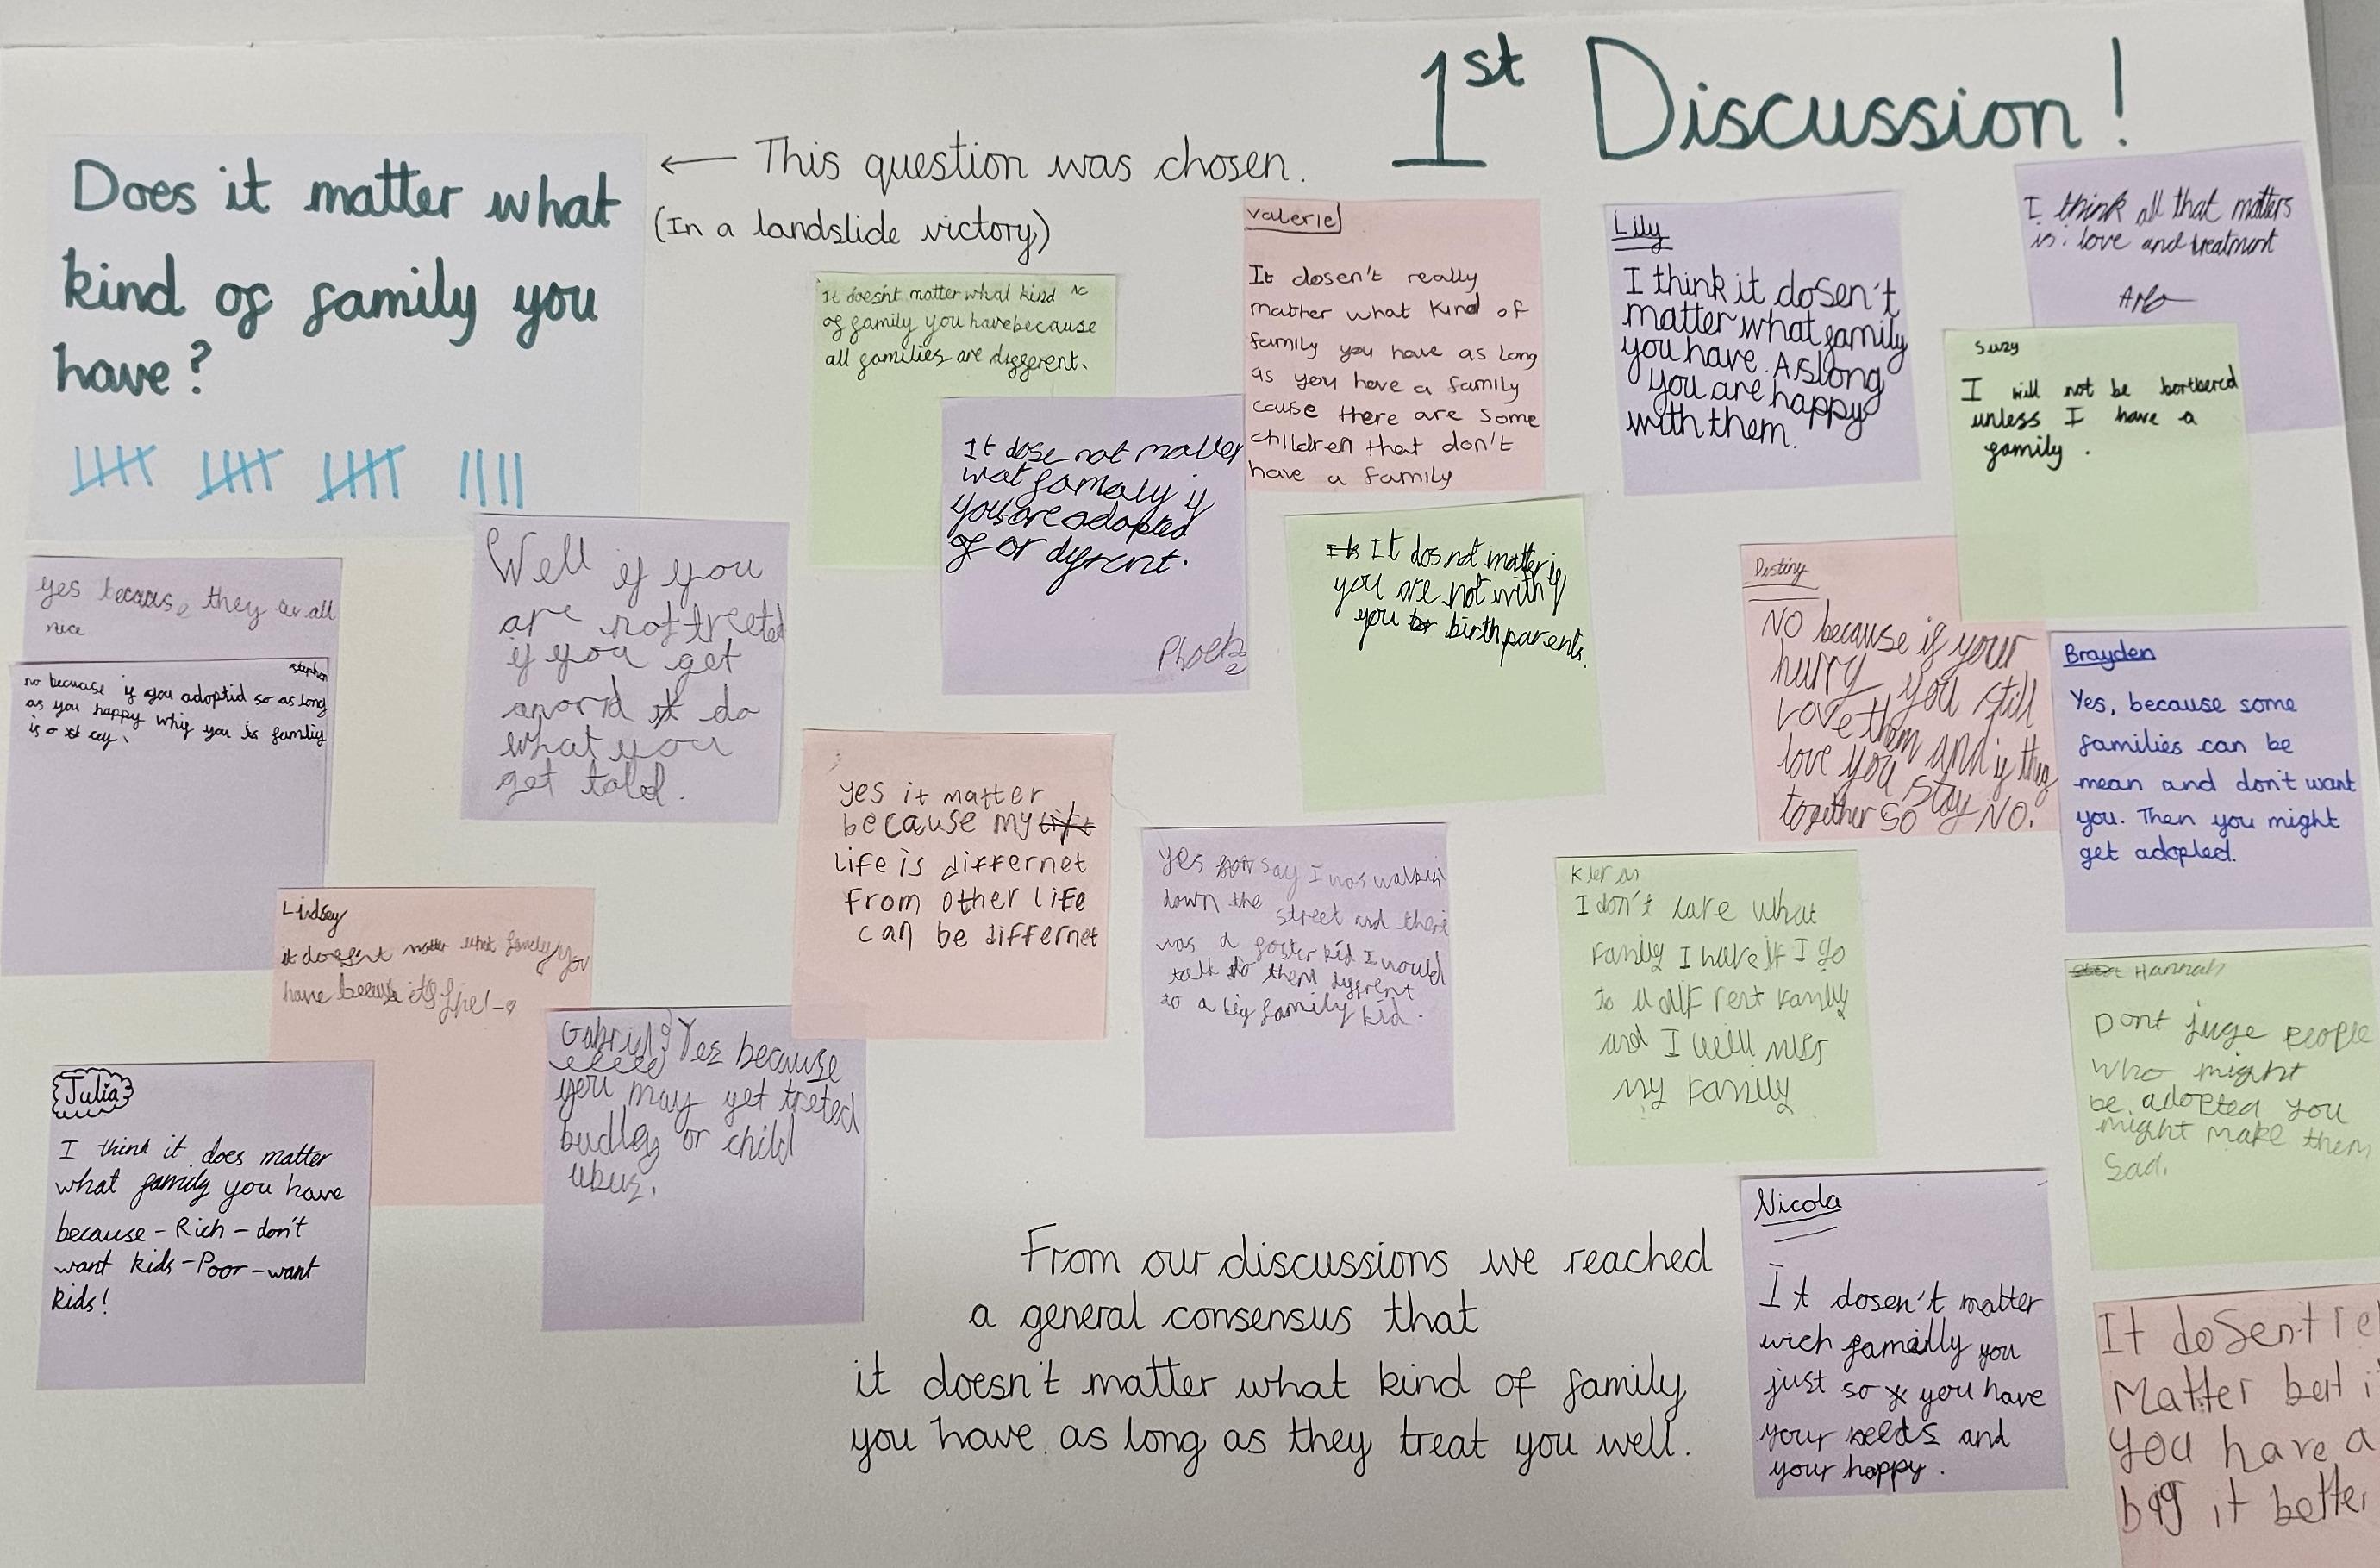 1st Discussion!
Does it matter what
kind of family you
have?
← This question was chosen.
(In a landslide victory)
It doesn't matter what kind
of family you have because
all families are different.
It dose not matter
wat famaly if
you are adopted
of or dyfrent.
Phoebe
Valerie
It dosen't really
matter what kind of
family you have as long
as you have a family
cause there are some
children that don't
have a family
Lily
I think it dosen't
matter what family
you have. As long
you are happy
with them.
I think all that matters
is: love and treatment
Suzy
I will not be bortbered
unless I have a
family.
It dos not matter if
you are not with
you birth parents.
Destiny
NO because if your
hurry you still
love them and if they
love you stay
together so NO.
Brayden
Yes, because some
families can be
mean and don't want
you. Then you might
get adopted.
yes because they ar all
nice
stephen
no because if you adoptid so as long
as you happy whif you is familiy
is o
Well if you
are not treeted
if you get
anord it do
what you
get told.
yes it matter
because my
life is differnet
from other life
can be differnet
yes say I was walkin
down the street and there
was a foster kid I would
talk to them dyffrent
to a big family kid.
Kieran
I don't care what
family I have if I go
to a diffrent family
and I will miss
my family
Hannah
Dont juge people
who might
be adopted you
might make them
sad.
Lindsey
it doesent matter what family you
have because it's fine!
Gabriel Yes because
you may get treted
budley or child
ubus.
Julia
I think it does matter
what family you have
because - Rich - don't
want kids - Poor - want
kids!
From our discussions we reached
a general consensus that
it doesn't matter what kind of family
you have as long as they treat you well.
Nicola
It dosen't matter
wich familly you
just so you have
your needs and
your happy.
It dosent re
Matter but i
you have a
big it better